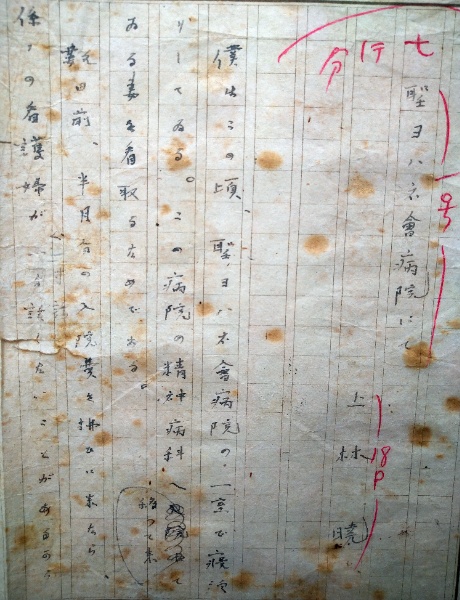 七行分
一号
聖ヨハネ會病院にて
18P
上林 暁
僕はこの頃、聖ヨハネ會病院の一室で寢泊
りしてゐる。この病院の精神病科へ移つて来て
ゐる妻を看取るためである。
日前、半月分の入院費を拂ひに来たら
係りの看護婦が話したいことがあるから